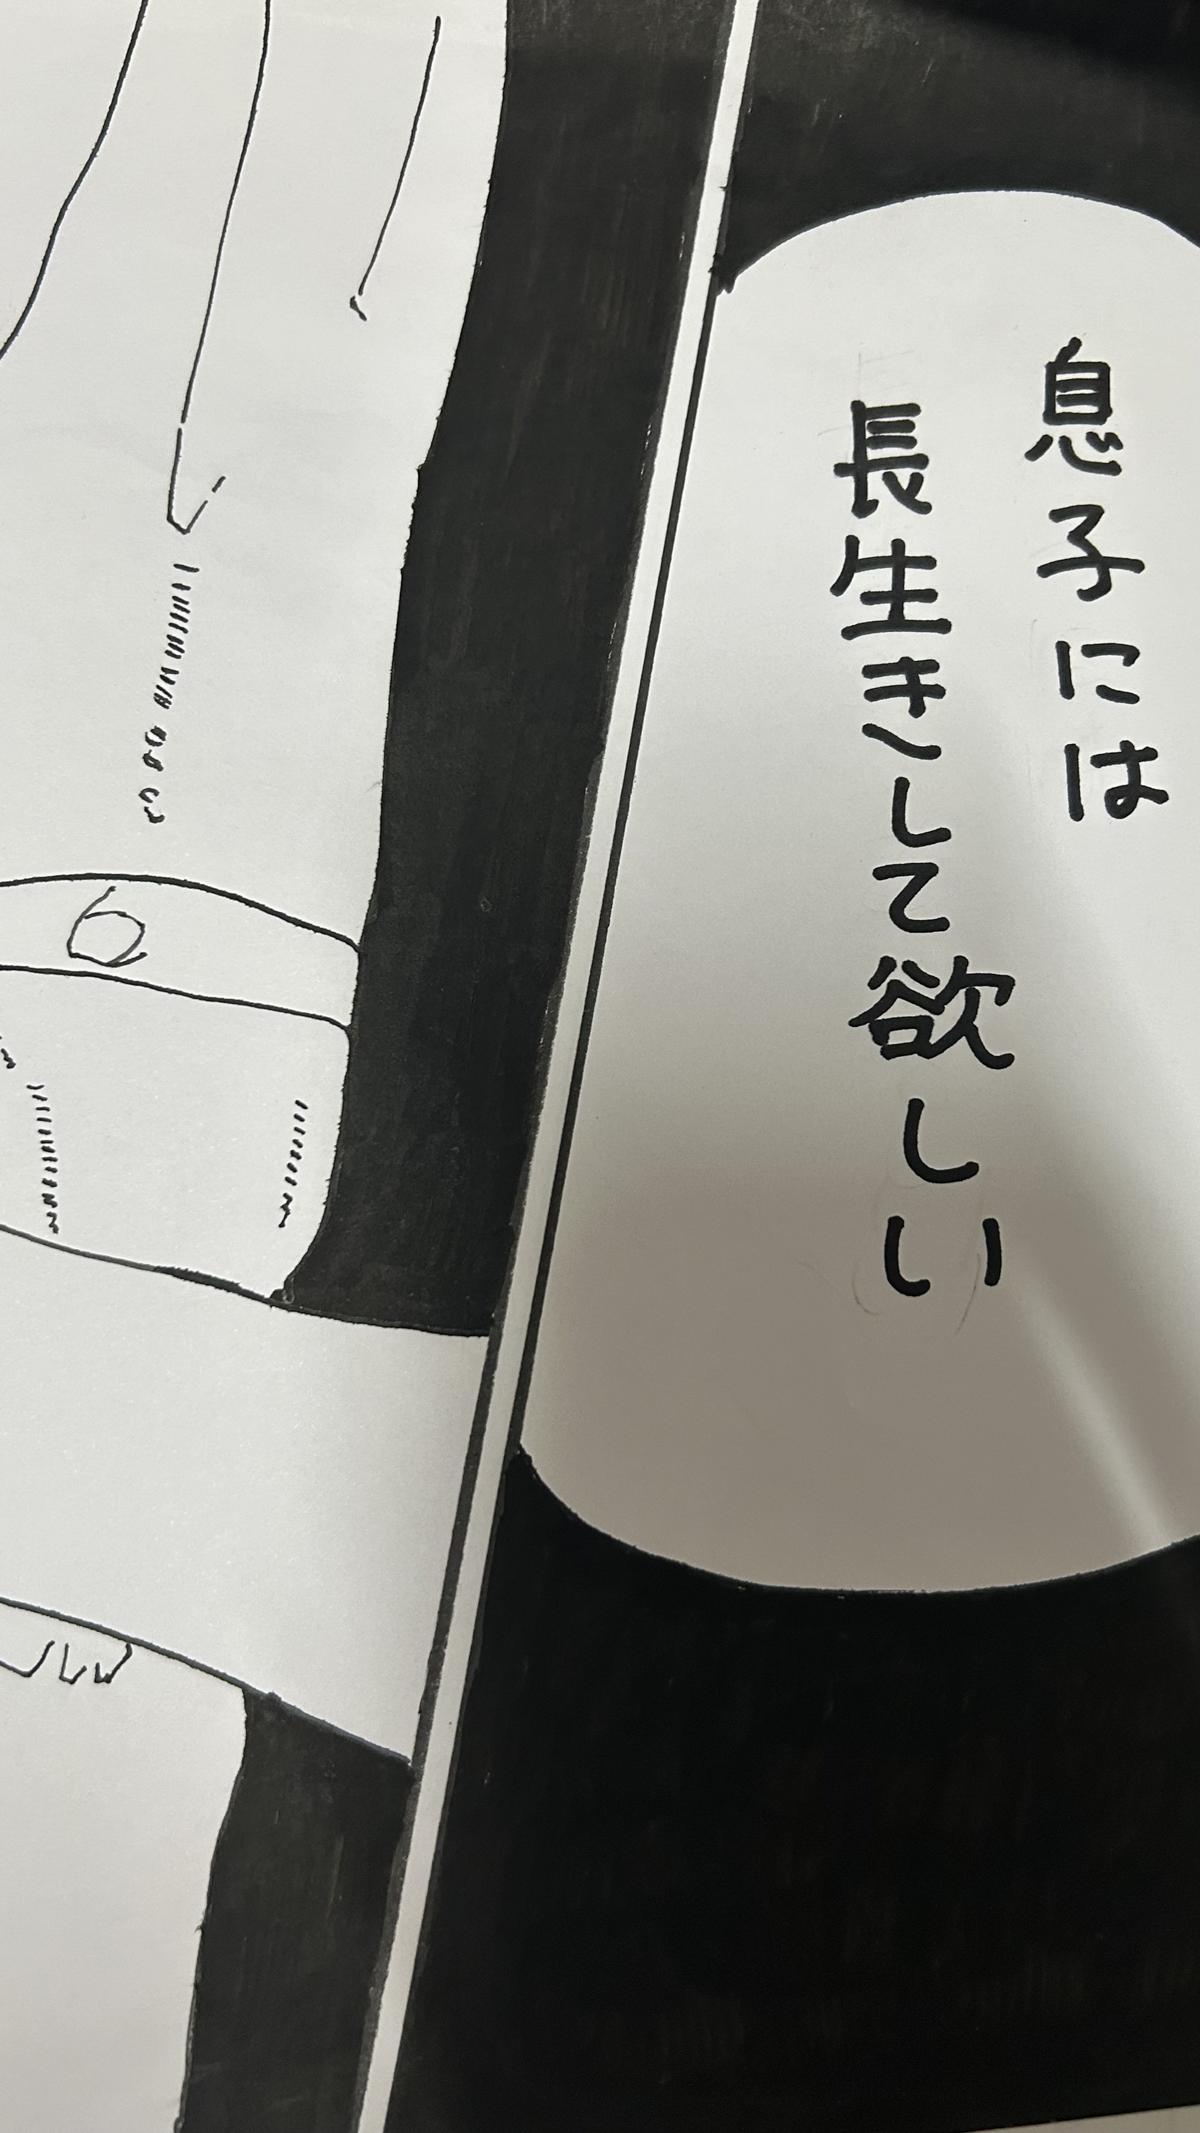 息子には
長生きして欲しい